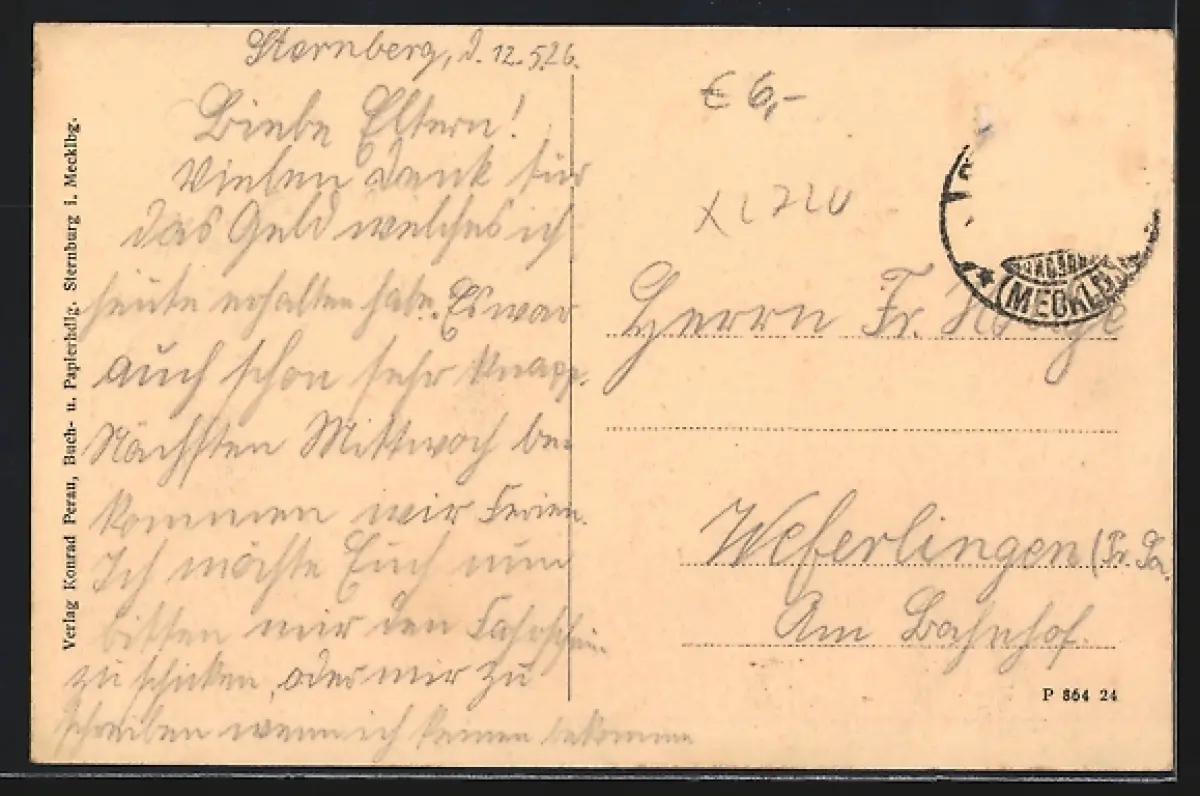 Sternberg, d. 12.5.26.
Liebe Eltern!
Vielen Dank für
das Geld welches ich
heute erhalten habe. Es war
auch schon sehr knapp.
Nächsten Mittwoch be-
kommen wir Ferien.
Ich möchte Euch nun
bitten mir den Fahrschein
zu schicken, oder mir zu
schreiben wenn ich keinen bekomme
Verlag Konrad Perau, Buch- u. Papierhdlg. Sternburg i. Mecklbg.
€ 6,-
(MECKLB.)
Herrn Fr.
Weferlingen (Pr. Sa.
Am Bahnhof.
P 864 24